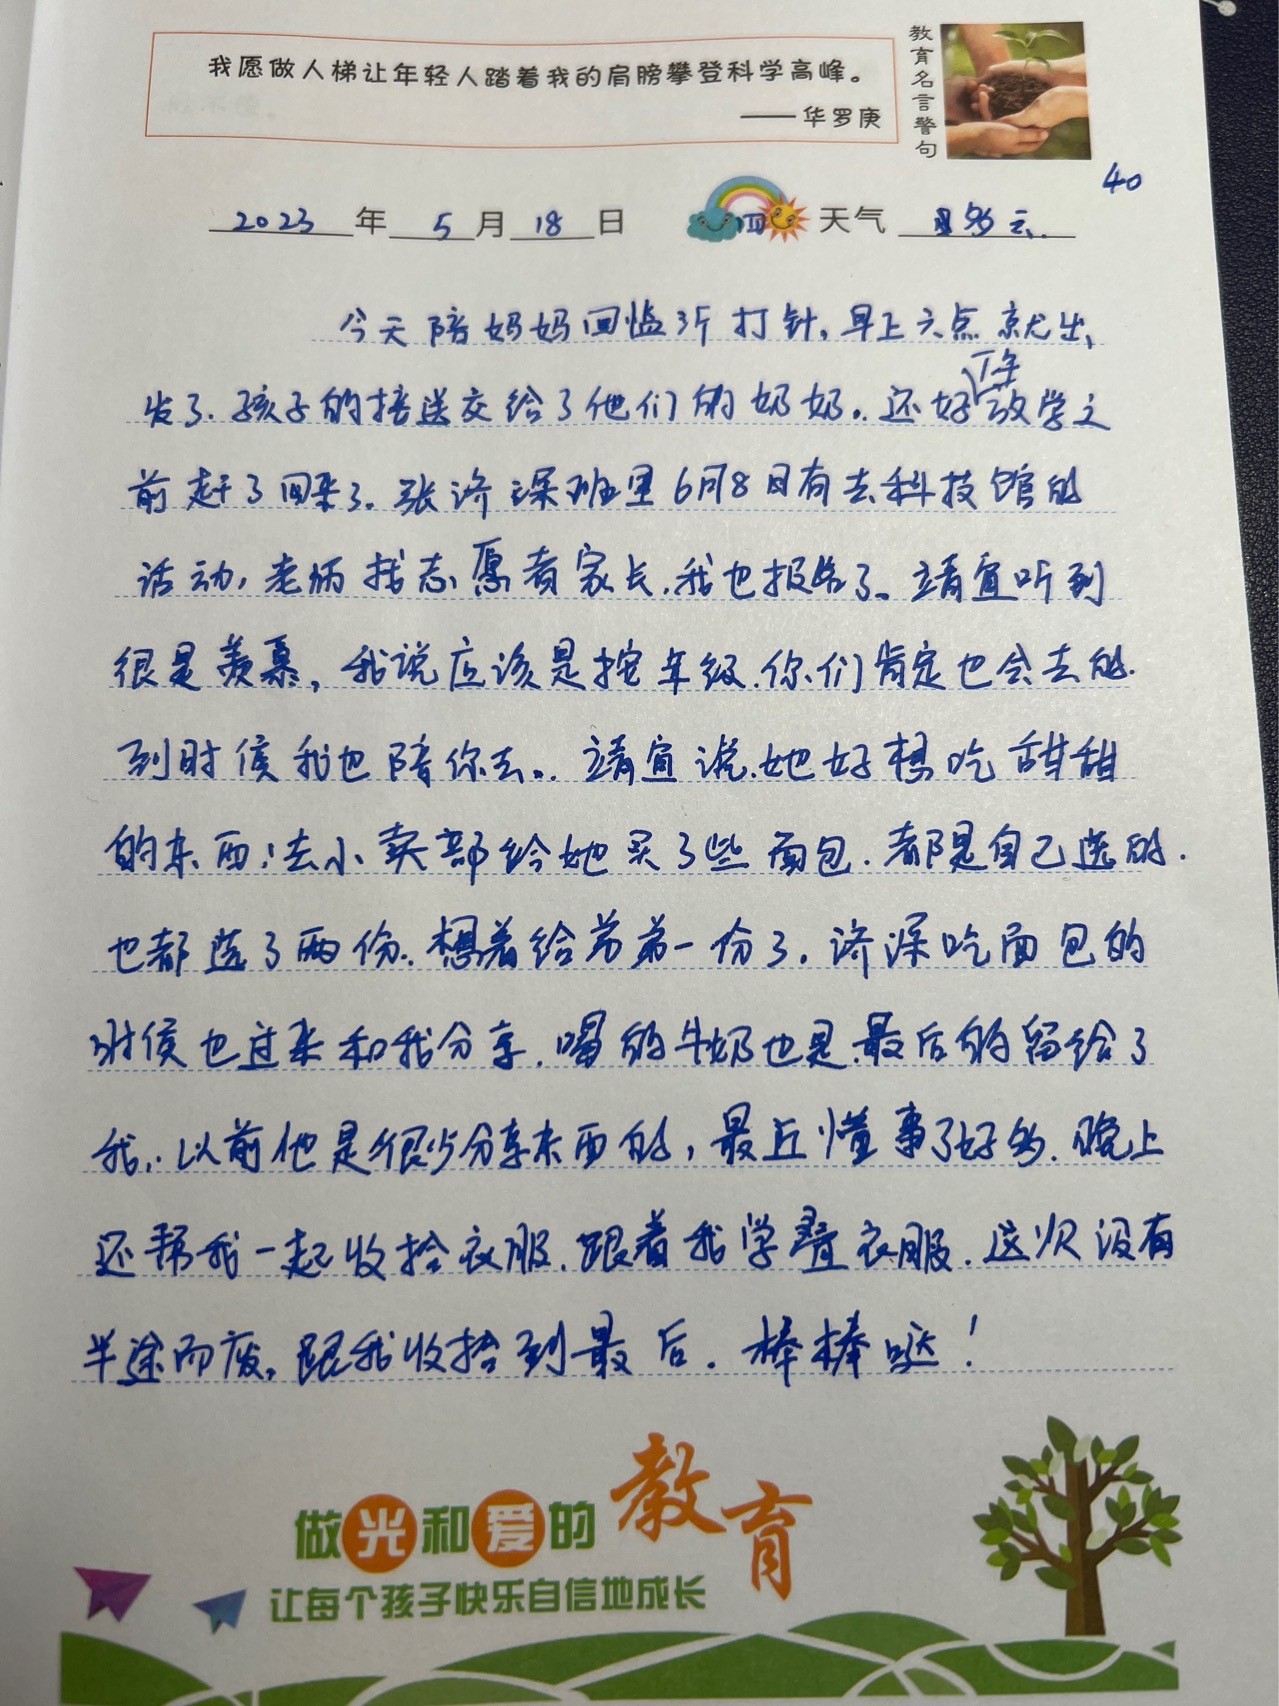 我愿做人梯让年轻人踏着我的肩膀攀登科学高峰。
——华罗庚
教育名言警句
40
2023年5月18日 四 天气 多云.
今天陪妈妈回临沂打针,早上六点就出
发了.孩子的接送交给了他们的奶奶.还好下午放学之
前赶了回来了.张济深班里6月8日有去科技馆的
活动,老师找志愿者家长,我也报名了。靖宜听到
很是羡慕,我说应该是按年级.你们肯定也会去的.
到时候我也陪你去..靖宜说她好想吃甜甜
的东西,去小卖部给她买了些面包.都是自己选的.
也都选了两份.想着给弟弟一份了.济深吃面包的
时候也过来和我分享.喝的牛奶也是最后的留给了
我.以前他是很少分享东西的,最近懂事了好多.晚上
还帮我一起收拾衣服.跟着我学叠衣服.这次没有
半途而废,跟我收拾到最后.棒棒哒!
做光和爱的教育
让每个孩子快乐自信地成长